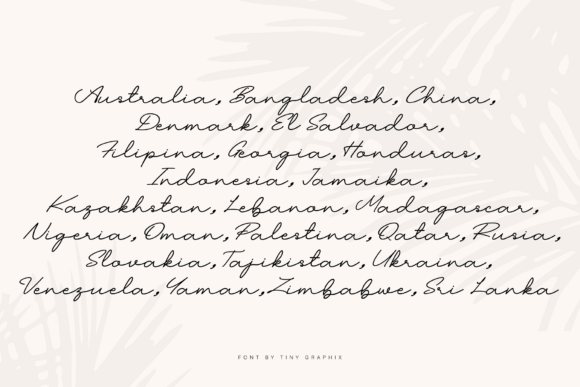 Australia, Bangladesh, China,
Denmark, El Salvador,
Filipina, Georgia, Honduras,
Indonesia, Jamaika,
Kazakhstan, Lebanon, Madagascar,
Nigeria, Oman, Palestina, Qatar, Rusia,
Slovakia, Tajikistan, Ukraina,
Venezuela, Yaman, Zimbabwe, Sri Lanka
FONT BY TINY GRAPHIX